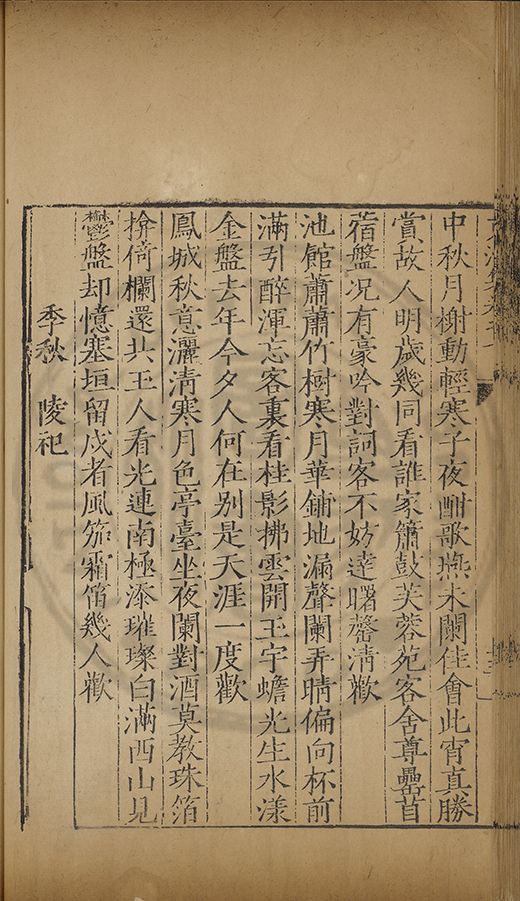 中秋月榭動輕寒子夜酣歌燕未闌佳會此宵真勝
賞故人明歲幾同看誰家簫鼓芙蓉苑客舍尊罍苜
蓿盤况有豪吟對詞客不妨達曙罄清歡
池館蕭蕭竹樹寒月華鋪地漏聲闌弄晴偏向杯前
滿引醉渾忘客裏看桂影拂雲開玉宇蟾光生水漾
金盤去年今夕人何在別是天涯一度歡
鳳城秋意灑清寒月色亭臺坐夜闌對酒莫教珠箔
揜倚欄還共玉人看光連南極添璀璨白滿西山見
鬱盤却憶塞垣留戍者風笳霜笛幾人歡
季秋 陵祀